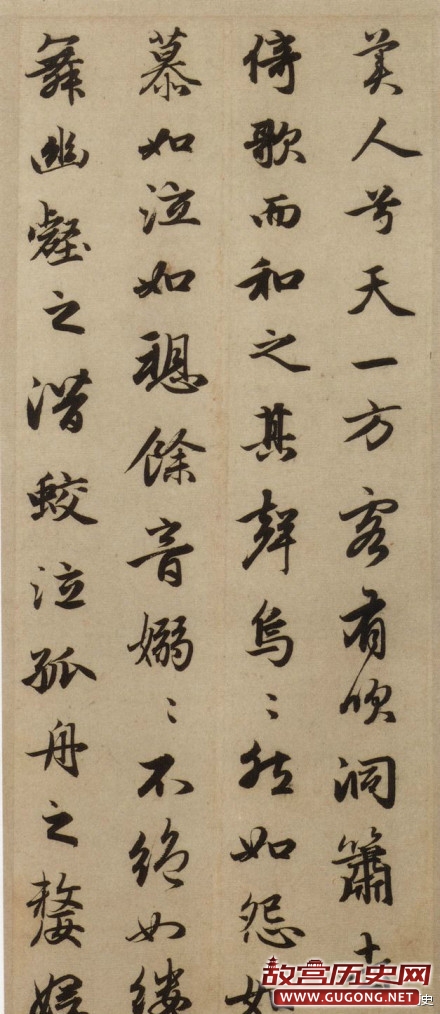 美人兮天一方客有吹洞簫者
倚歌而和之其聲烏〻然如怨如
慕如泣如愬餘音嫋〻不絕如縷
舞幽壑之潛蛟泣孤舟之嫠婦
故宫历史网
WWW.GUGONG.NET
史